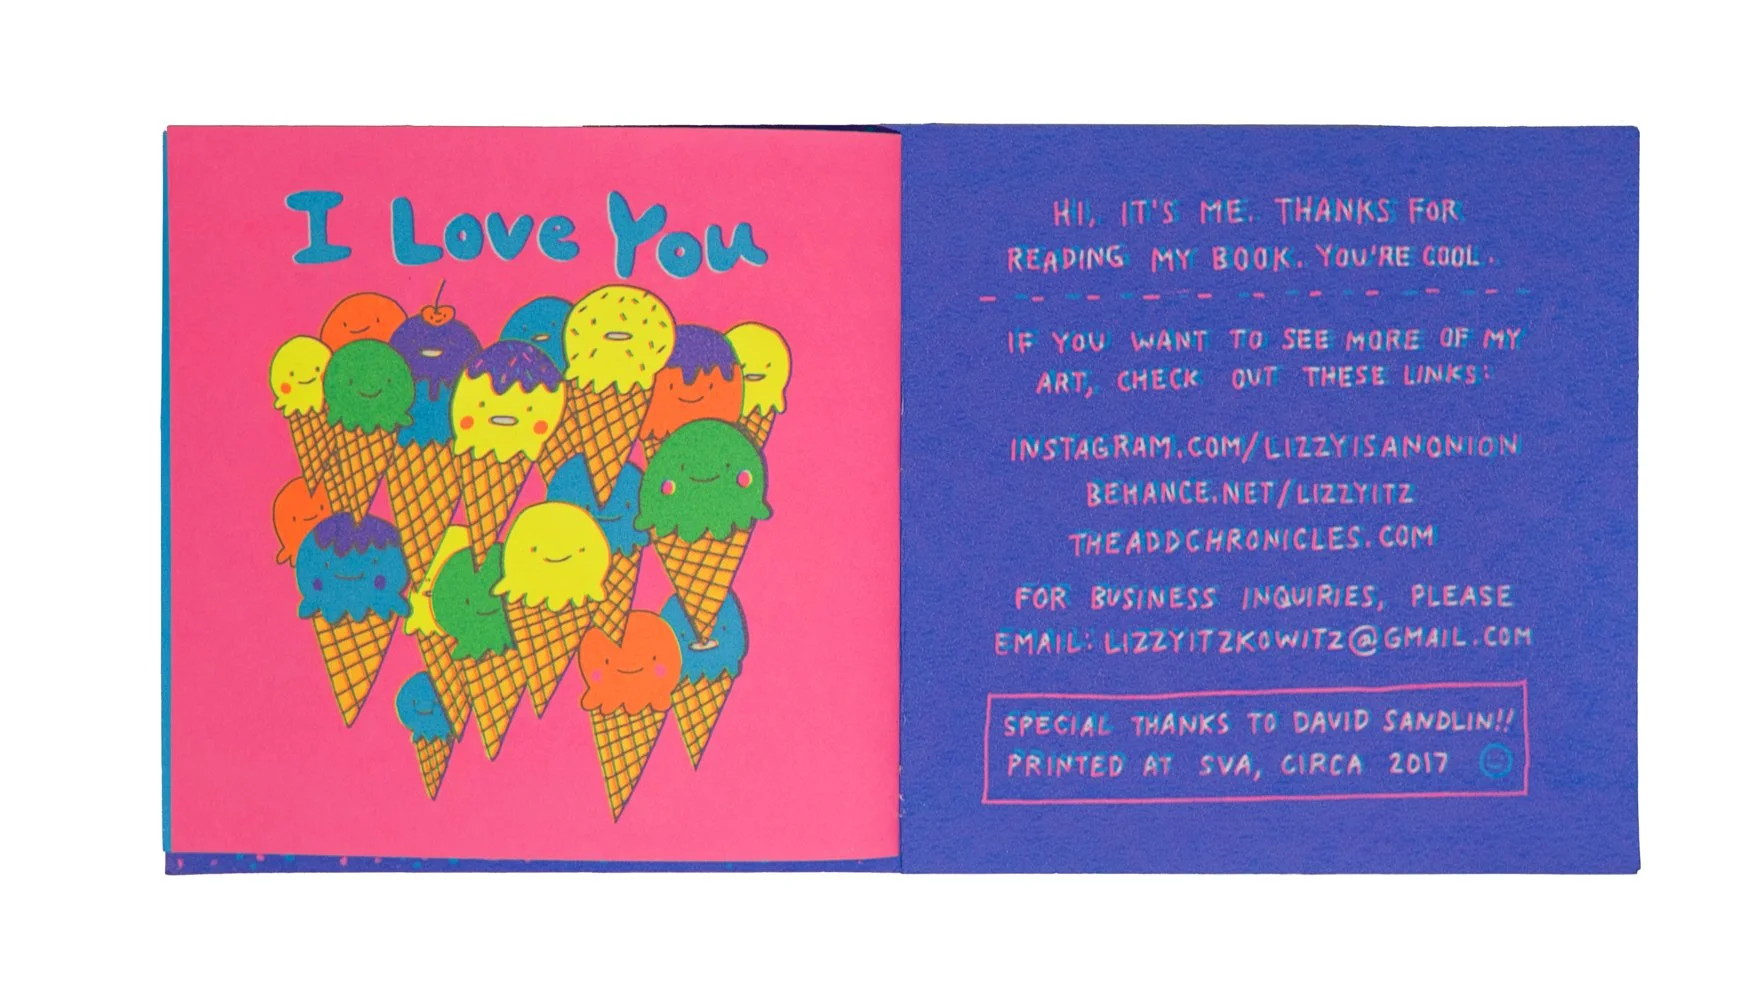 I Love You
HI, IT'S ME. THANKS FOR
READING MY BOOK. YOU'RE COOL.
IF YOU WANT TO SEE MORE OF MY
ART, CHECK OUT THESE LINKS:
INSTAGRAM.COM/LIZZYISANONION
BEHANCE.NET/LIZZYITZ
THEADDCHRONICLES.COM
FOR BUSINESS INQUIRIES, PLEASE
EMAIL: LIZZYITZKOWITZ@GMAIL.COM
SPECIAL THANKS TO DAVID SANDLIN!!
PRINTED AT SVA, CIRCA 2017